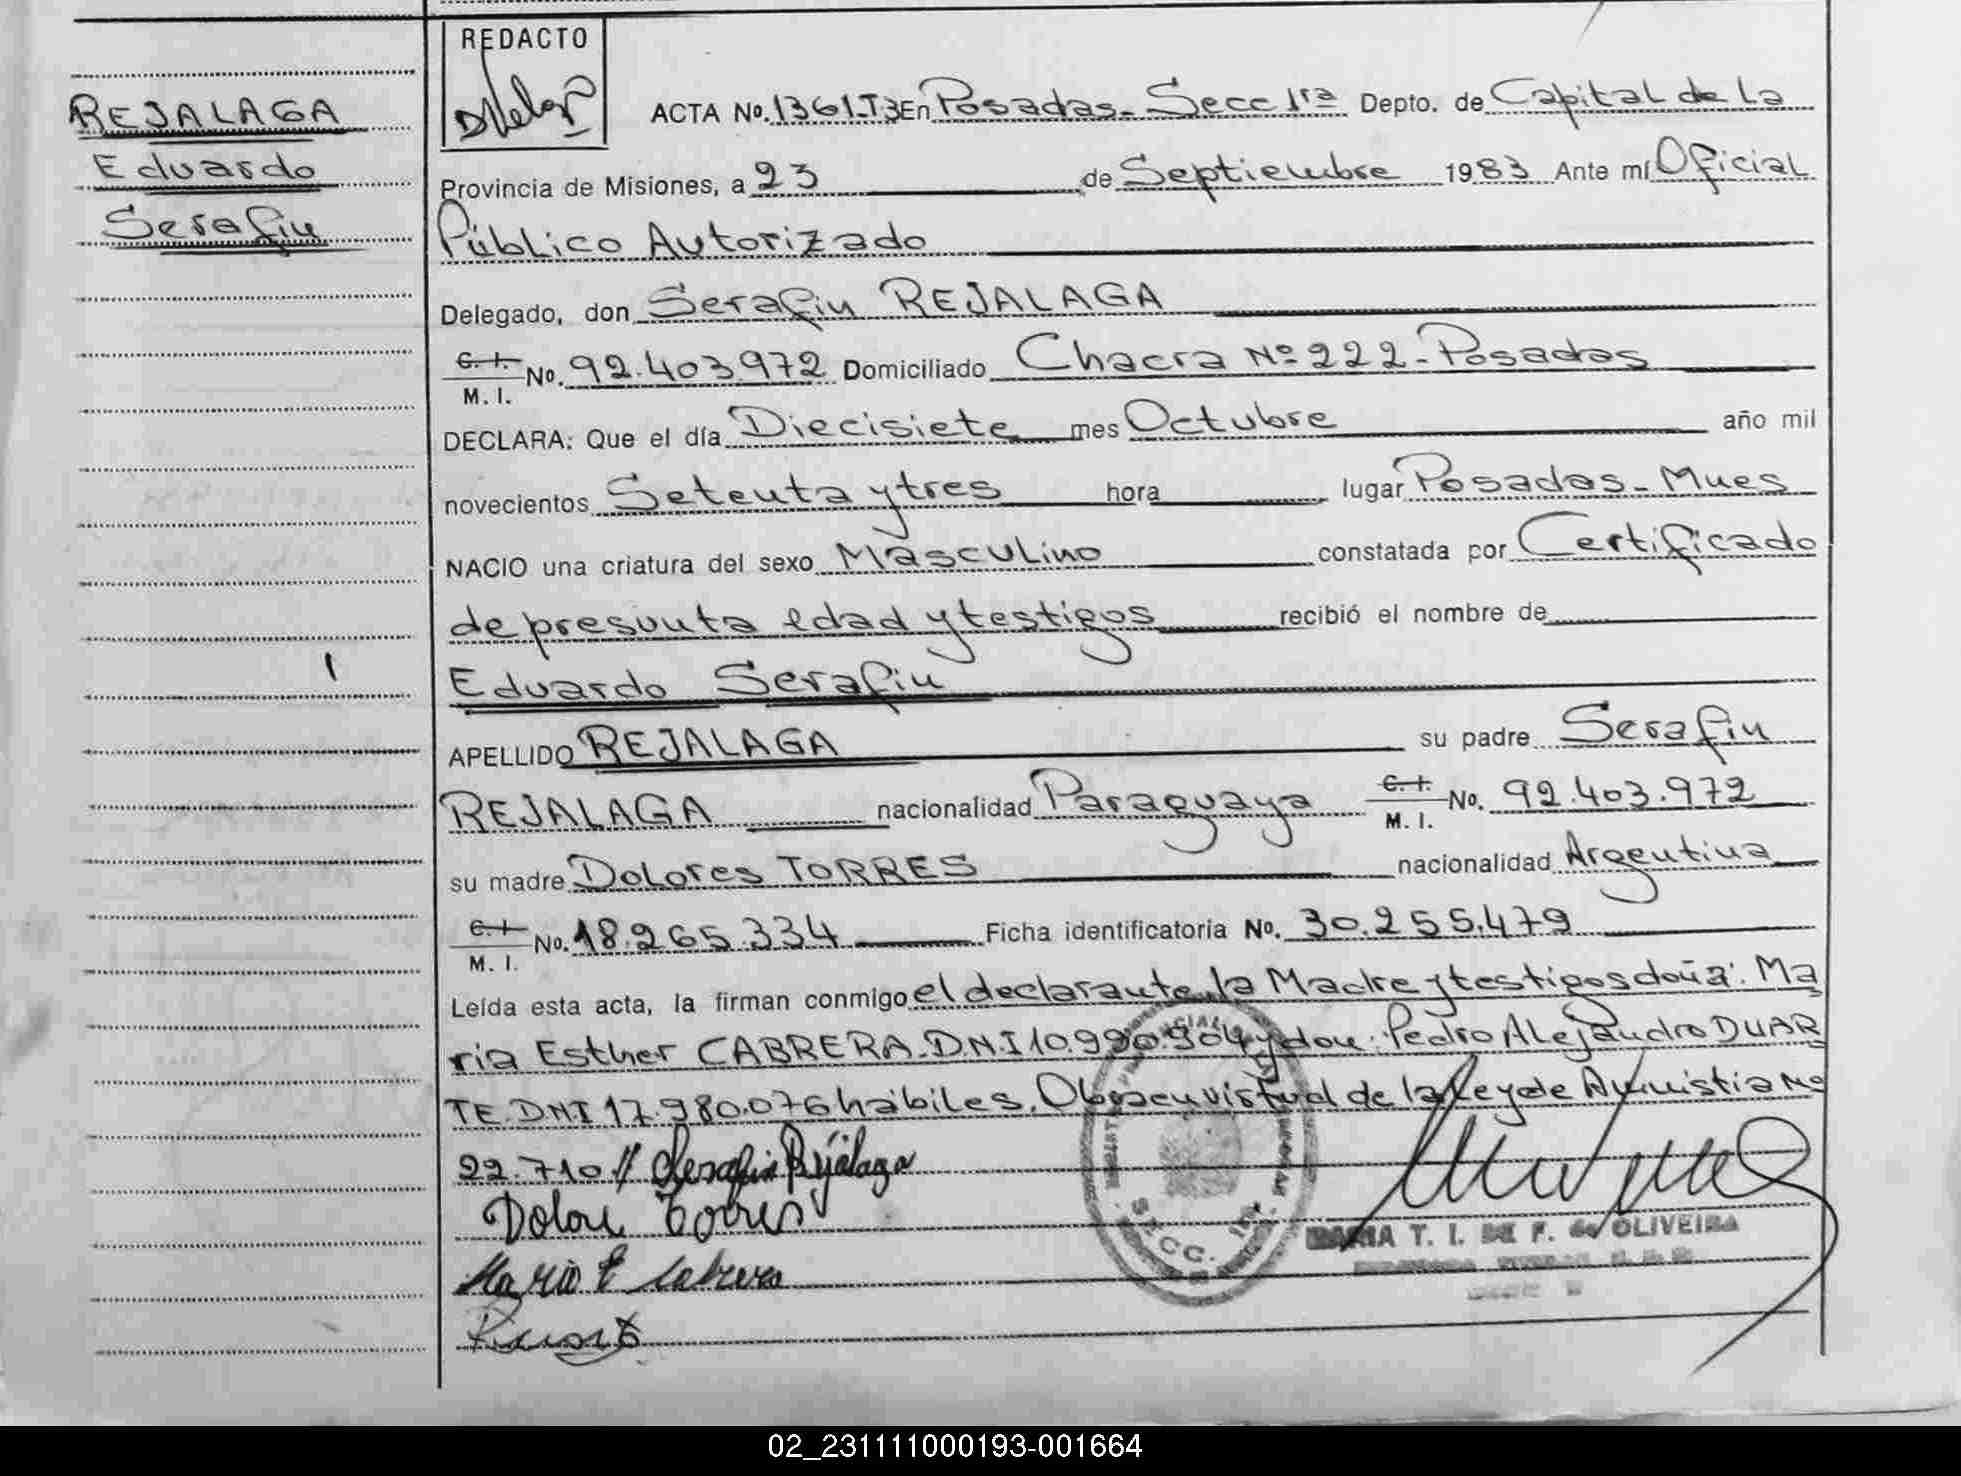 REDACTO
REJALAGA
Eduardo
Serafin
ACTA No. 1361-T3 En Posadas- Secc 1ra Depto. de Capital de la
Provincia de Misiones, a 23 de Septiembre 1983 Ante mí Oficial
Público Autorizado
Delegado, don Serafin REJALAGA
C. I. M. I. No. 92.403.972 Domiciliado Chacra Nº 222-Posadas
DECLARA: Que el día Diecisiete mes Octubre año mil
novecientos Setenta y tres hora lugar Posadas-Mnes
NACIO una criatura del sexo Masculino constatada por Certificado
de presunta edad y testigos recibió el nombre de
Eduardo Serafin
APELLIDO REJALAGA su padre Serafin
REJALAGA nacionalidad Paraguaya C. I. M. I. No. 92.403.972
su madre Dolores TORRES nacionalidad Argentina
C. I. M. I. No. 18.265.334 Ficha identificatoria No. 30.255.479
Leída esta acta, la firman conmigo el declarante, la Madre y testigos doña: Ma
ria Esther CABRERA-D.N.I 10.990.904 y don: Pedro Alejandro DUAR
TE-DNI 17.980.076 habiles. Obs: en virtud de la Ley de Amnistia Nº
22.710// Serafin Rejalaga
Dolore Torres
Maria E Cabrera
SECC. 1ra
MARIA T. I. DE F. de OLIVEIRA
02_231111000193-001664